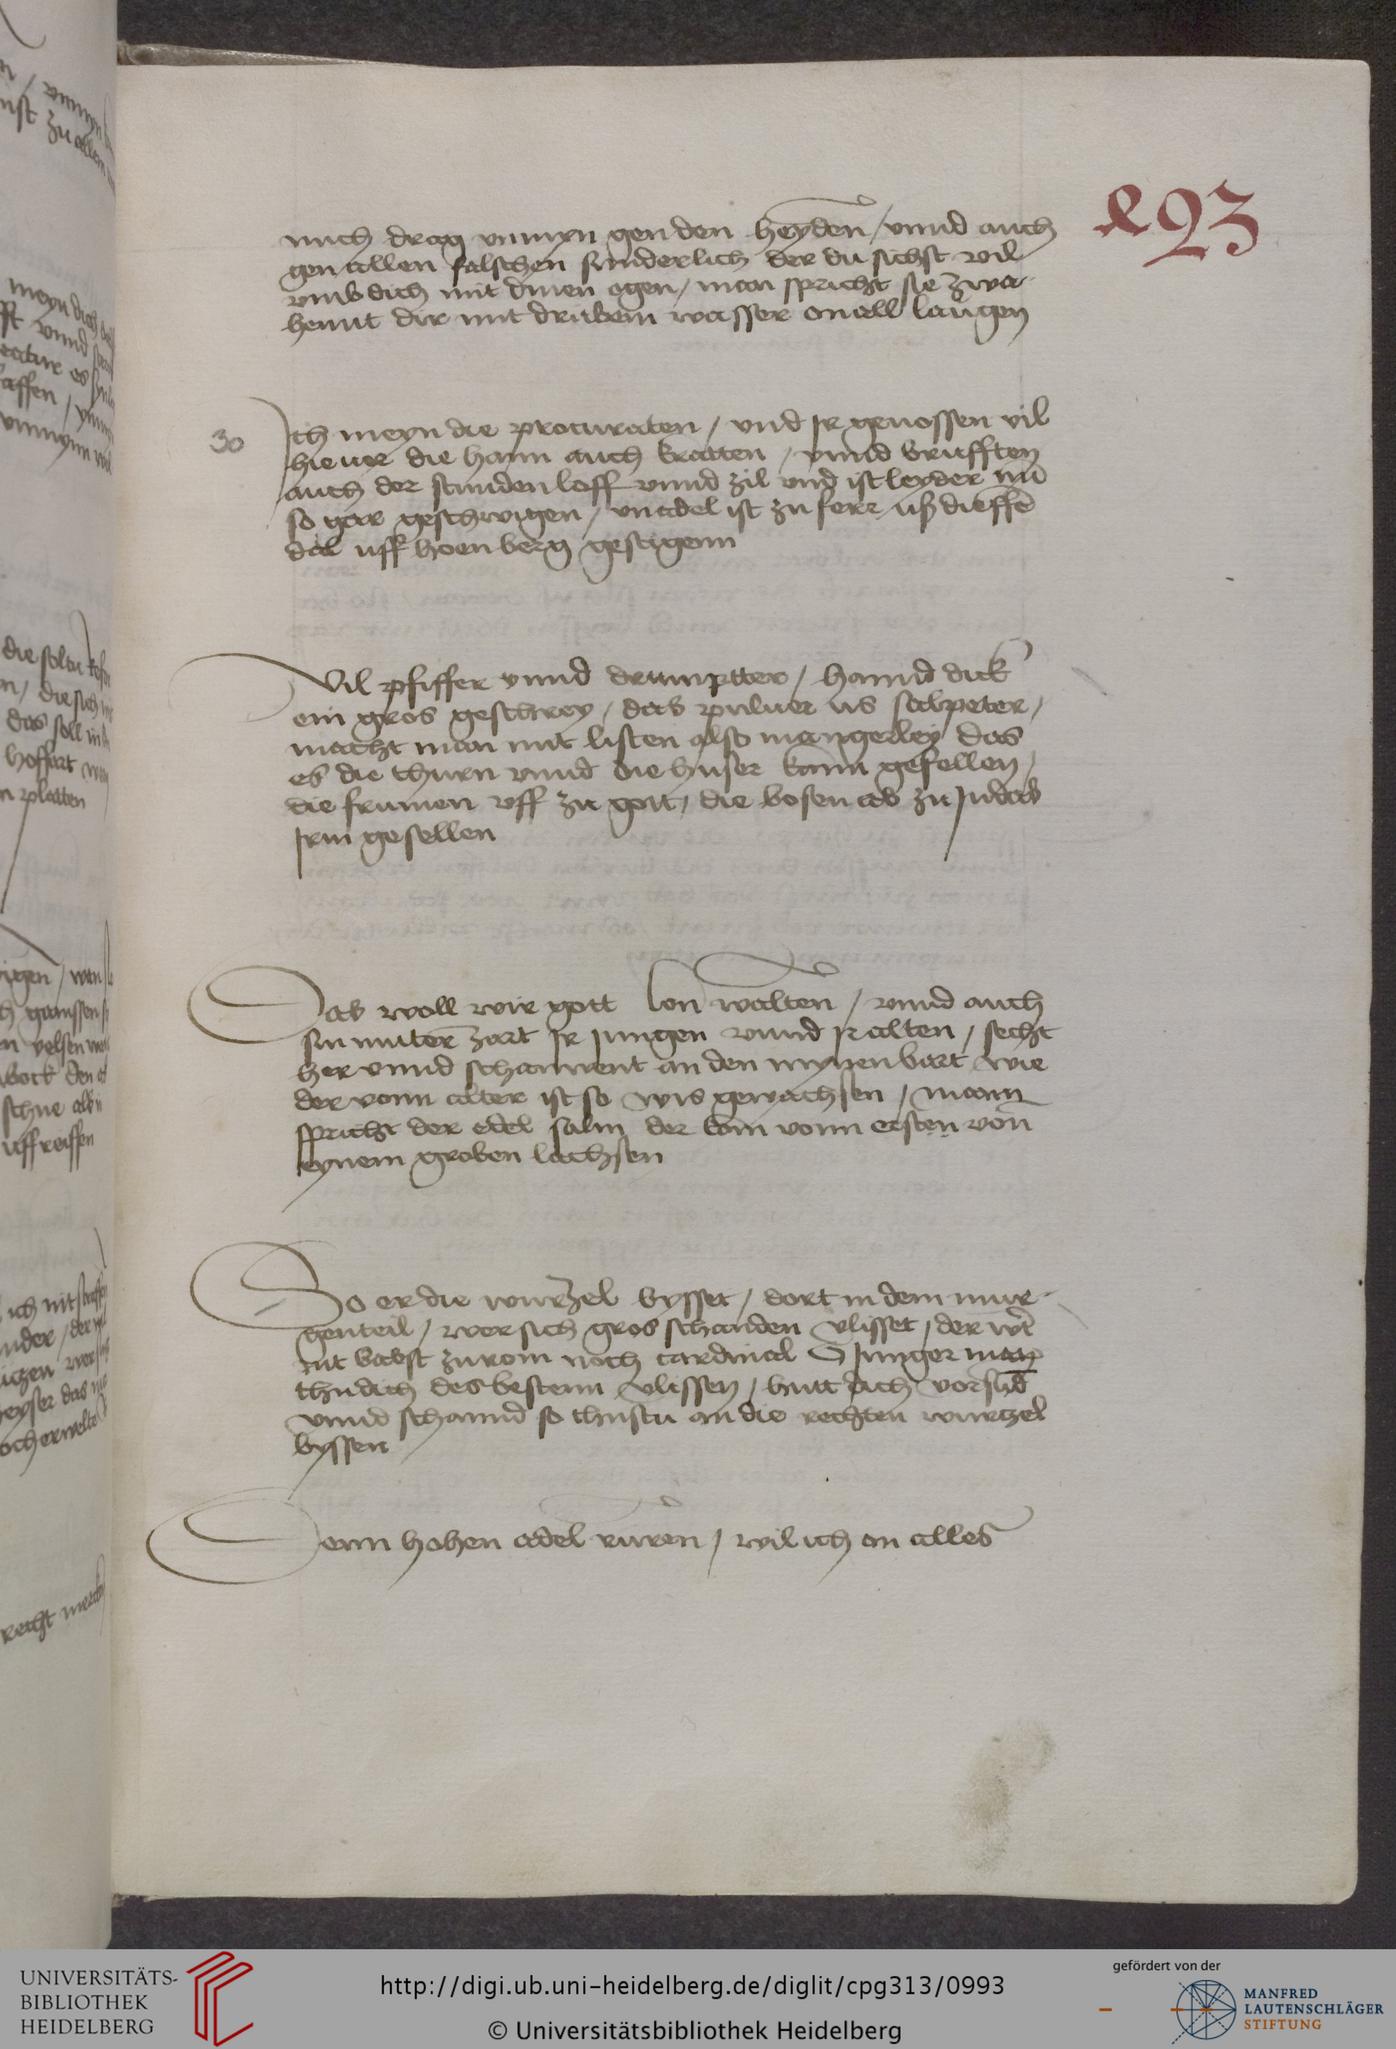 493
mich drag vnmyn gen den heyden / vnnd auch
gen allen falschen sunderlich der du sichst vil
vmb dich mit dinen ogen / man spricht sie zwa
hennt dir mit drubem wasser on all laugen
30
Ich meyn die procuraten / vnd Ir genossen vil
hie uor die hann auch kratten / vnnd brufften
auch der stunden loff vnnd zil vnd ist leyder nu
so gar geschwigen / vnadel ist zu ferr uß dieffe
dal uff hoen berg gestigenn
Vil pfiffer vnnd drumptter / hannd dick
ein gros geschrey / das puluer us salpeter /
macht man mit listen also mengerley das
es die thurn vnnd die huser kann gefellen /
die frumen vff zu gott / die bosen ab zu Judas
Irm gesellen
Das woll wir gott lon walten / vnnd auch
sin muter zart Ir Jungen vnnd Ir alten / secht
her vnnd schauwent an den mynen bart wie
der vonn alter ist so wis gewachsen / mann
spricht der edel salm der kom vonn ersten von
eynem groben lachsen
So er die wurzel bysset / dort in dem mur
genteil / wer sich gros schanden vlisset / der wirt
nit babst zu rom noch cardinal O Junger man
thu dich des bestenn vlissen / hutt dich vor sund
vnnd schannd so thustu an die rechten wurtzel
byssen
Denn hohen adel ruren / wil ich on alles
UNIVERSITÄTS-
BIBLIOTHEK
HEIDELBERG
http://digi.ub.uni-heidelberg.de/diglit/cpg313/0993
© Universitätsbibliothek Heidelberg
gefördert von der
MANFRED
LAUTENSCHLÄGER
STIFTUNG